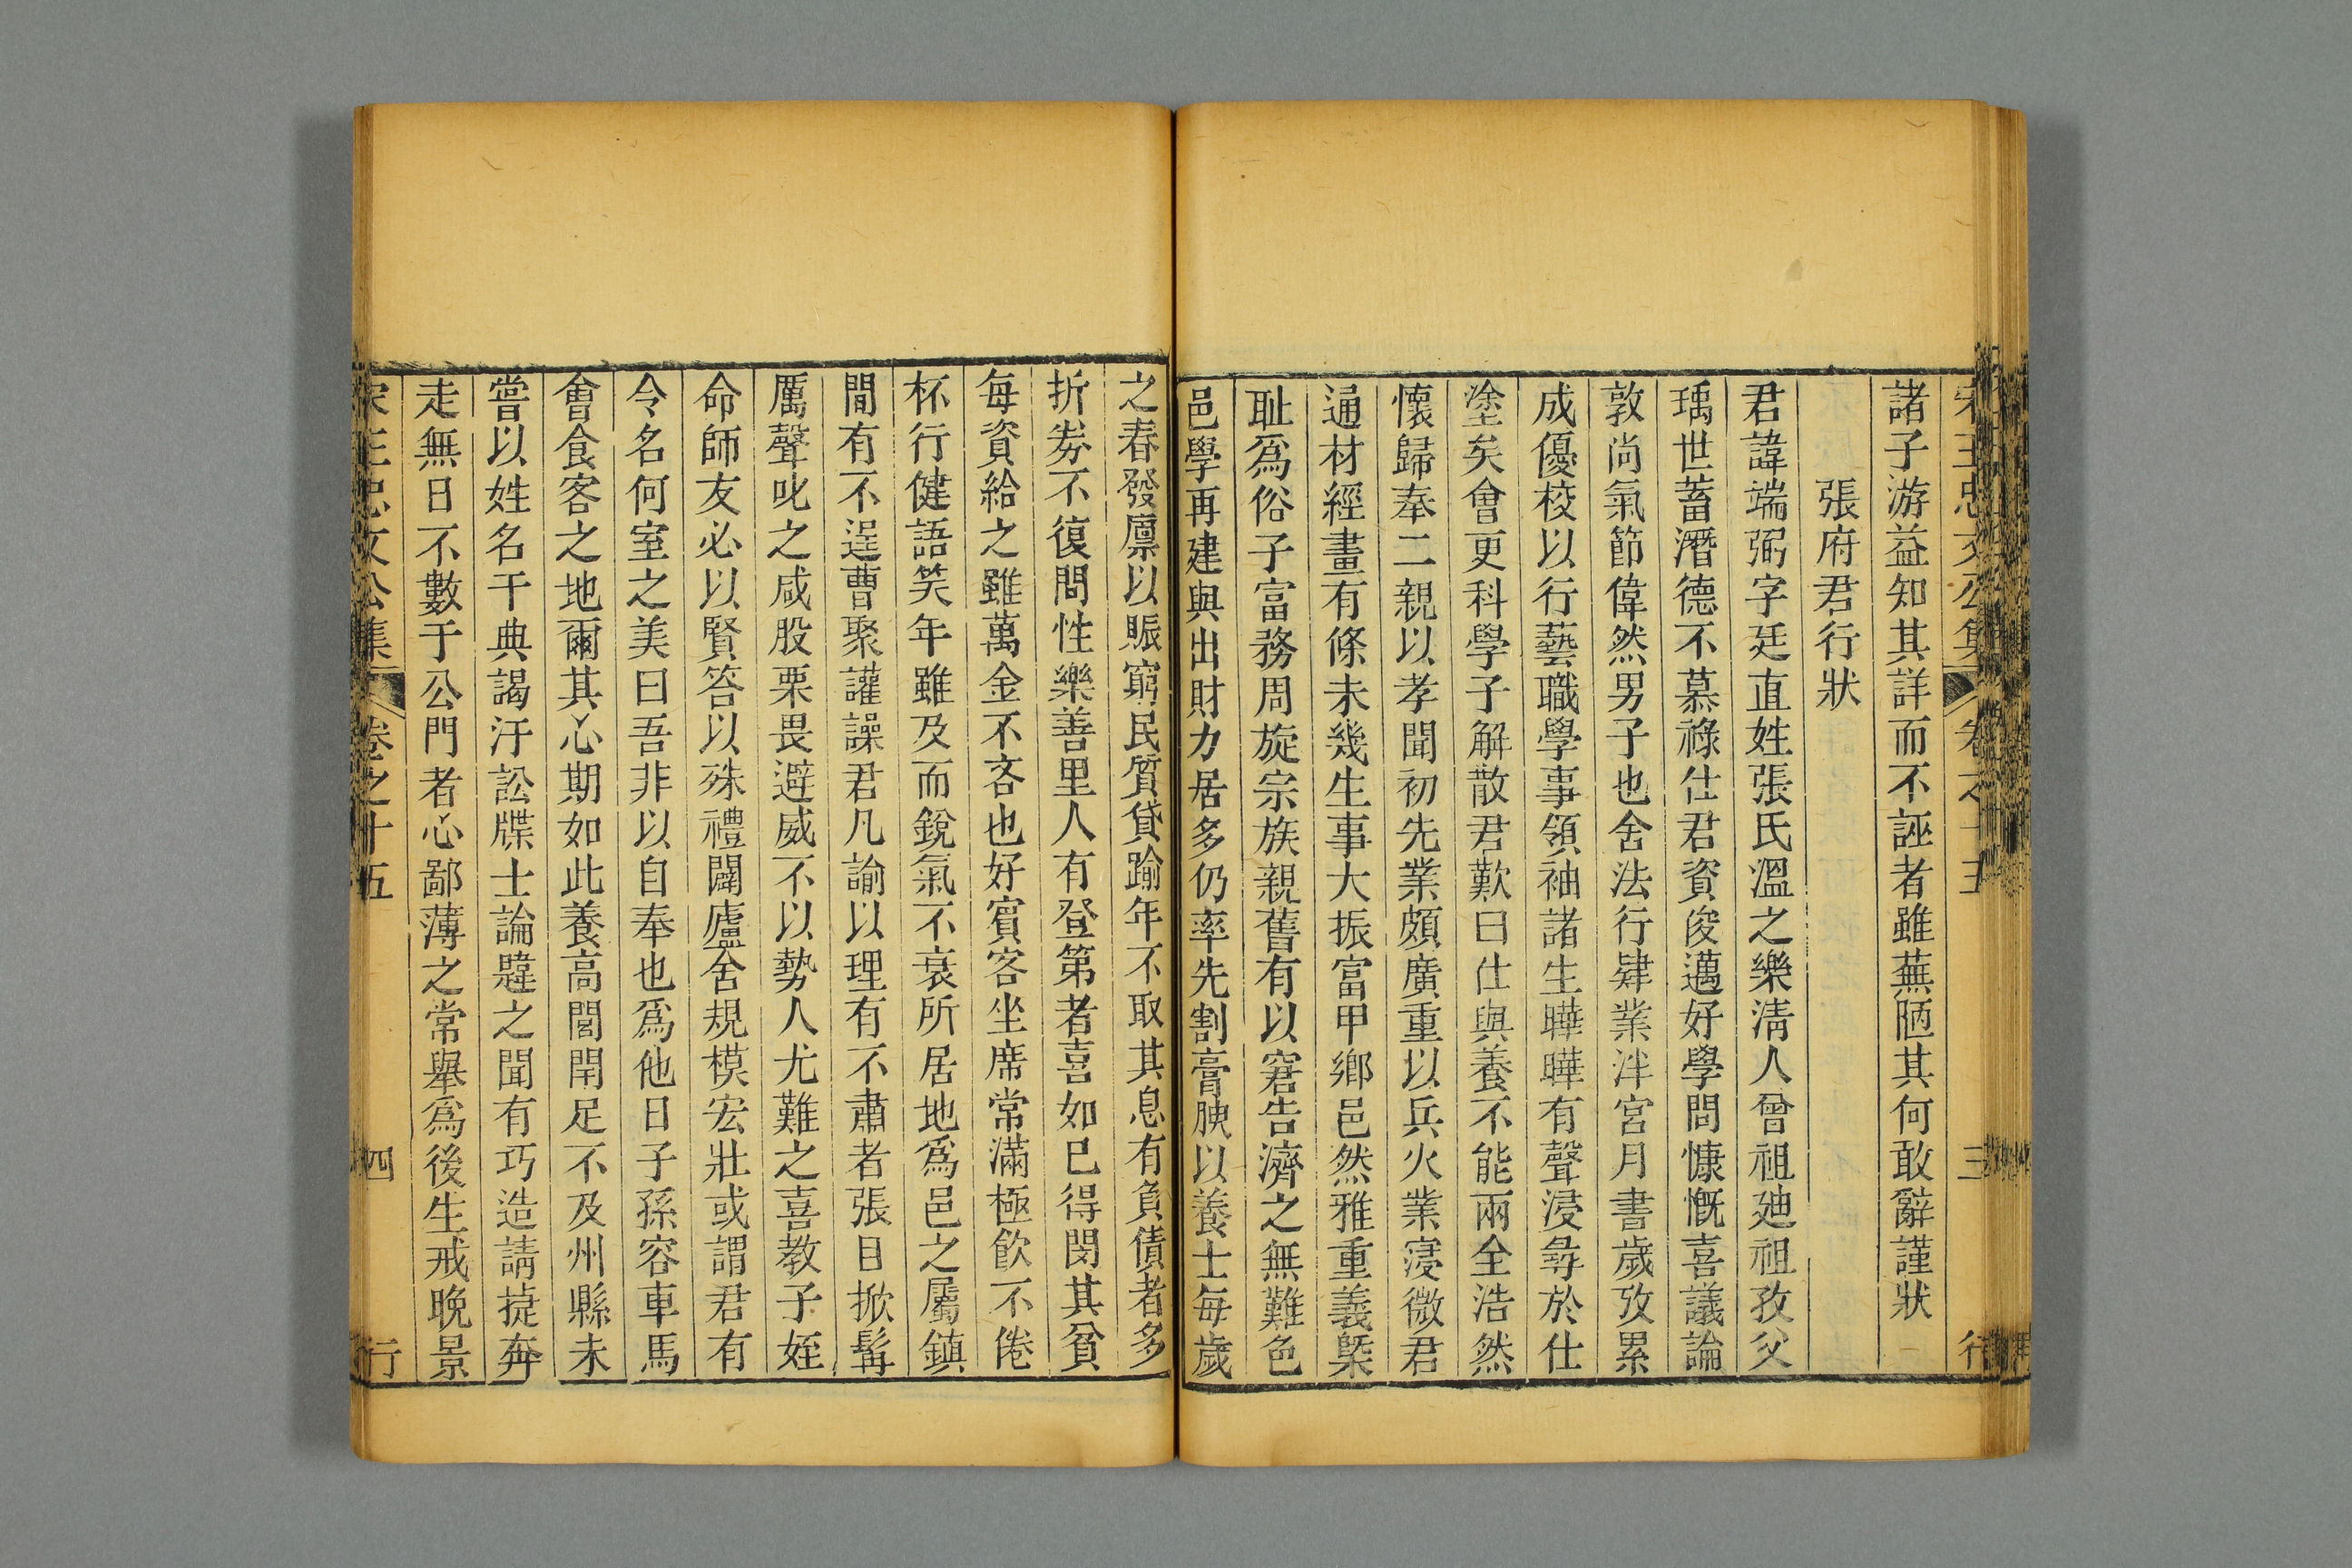 諸子游益知其詳而不誣者雖蕪陋其何敢辭謹狀
張府君行狀
君諱端弼字廷直姓張氏溫之樂清人曾祖廸祖孜父
瑀世蓄潛德不慕祿仕君資俊邁好學問慷慨喜議論
敦尚氣節偉然男子也舍法行肄業泮宮月書歲攷累
成優校以行藝職學事領袖諸生曄曄有聲浸尋於仕
塗矣會更科學子解散君歎曰仕與養不能兩全浩然
懷歸奉二親以孝聞初先業頗廣重以兵火業寖微君
通材經畫有條未幾生事大振富甲鄉邑然雅重義槩
耻爲俗子富務周旋宗族親舊有以窘告濟之無難色
邑學再建與出財力居多仍率先割膏腴以養士每歲
之春發廪以賑窮民質貸踰年不取其息有負債者多
折劵不復問性樂善里人有登第者喜如已得閔其貧
每資給之雖萬金不吝也好賓客坐席常滿極飲不倦
杯行健語笑年雖及而銳氣不衰所居地爲邑之屬鎮
閒有不逞曹聚讙譟君凡諭以理有不肅者張目掀髯
厲聲叱之咸股栗畏避威不以勢人尤難之喜教子姪
命師友必以賢答以殊禮闢廬舍規模宏壯或謂君有
令名何室之美曰吾非以自奉也爲他日子孫容車馬
會食客之地爾其心期如此養高閭閈足不及州縣未
嘗以姓名干典謁汙訟牒士論韙之聞有巧造請㨗奔
走無日不數于公門者心鄙薄之常舉爲後生戒晚景
宋王忠文公集 卷之十五 四 行